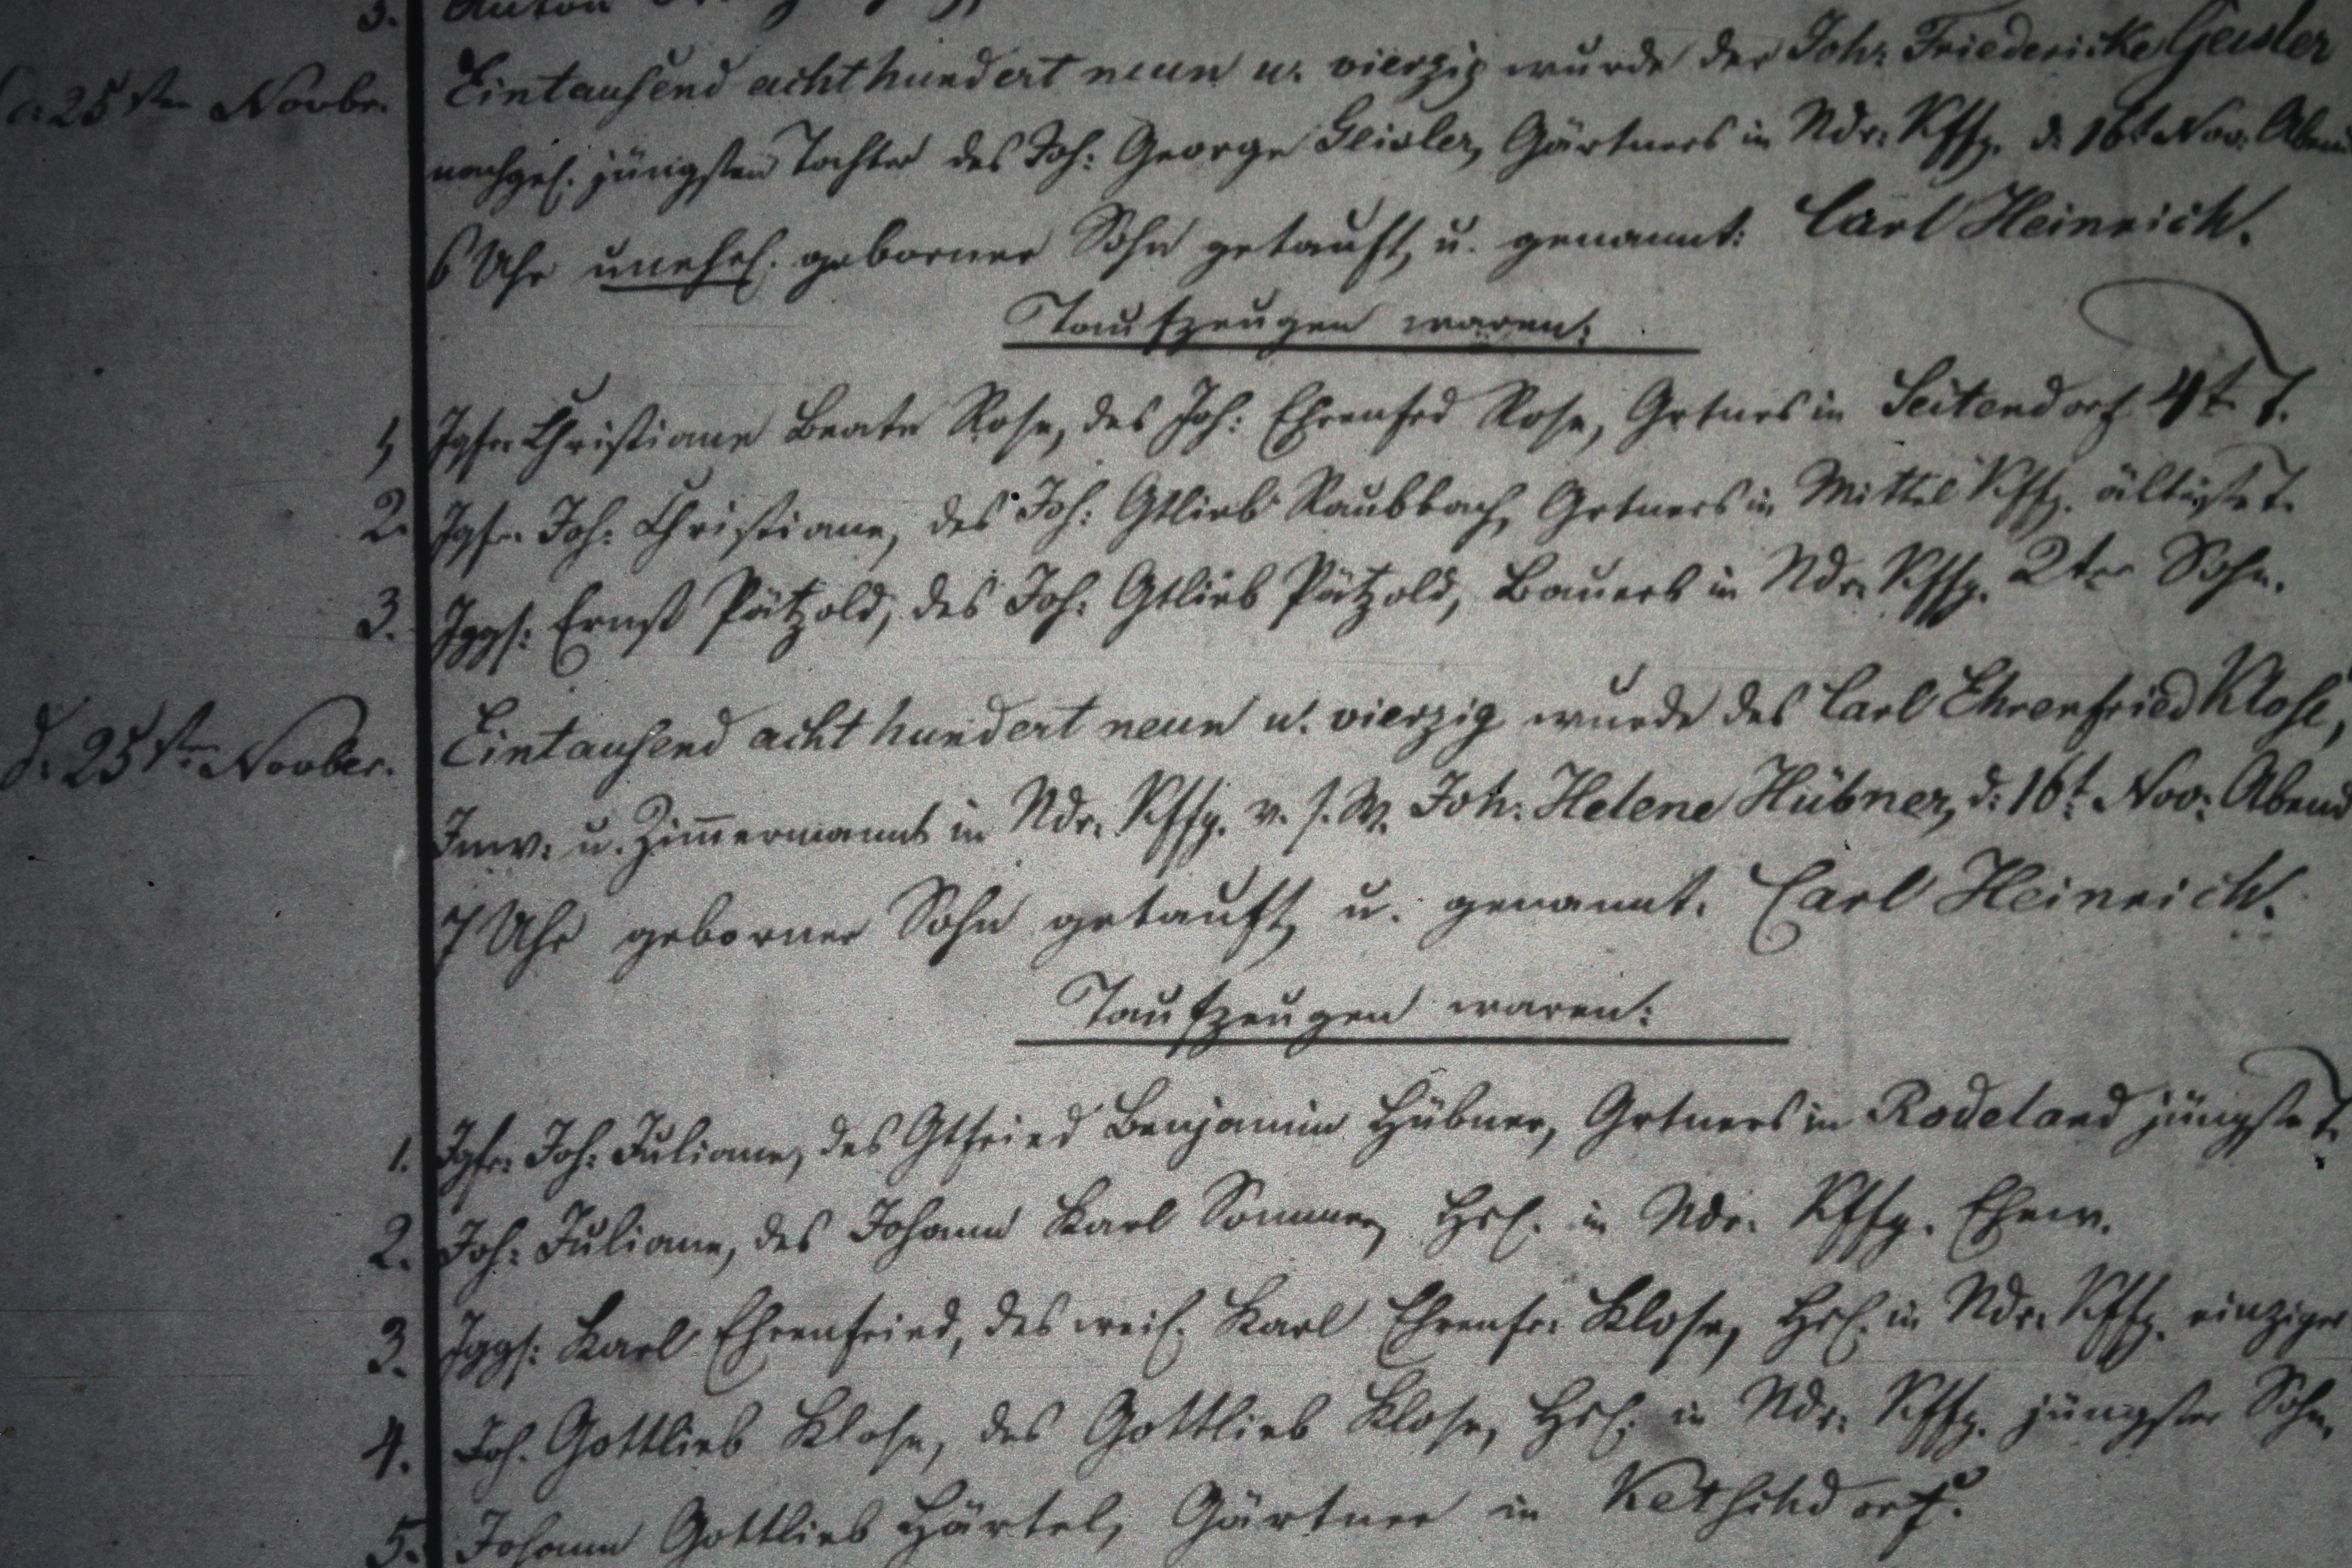 3. Anton
d. 25sten Novbr. Eintausend achthundert neun u. vierzig wurde der Joh: Friedericke Geisler
nachgel. jüngsten Tochter des Joh: George Geisler, Gärtners in Ndr: Kffg. d: 16t Nov: Abend
6 Uhr unehel. geborner Sohn getauft, u. genannt: Carl Heinrich.
Taufzeugen waren:
1, Jgfr. Christiane Beate Rose, des Joh: Ehrenfrd Rose, Grtners in Seitendorf 4te T.
2. Jgfr. Joh: Christiane, des Joh: Gtlieb Raubbach, Grtners in Mittel Kffg. älteste T.
3. Jggs: Ernst Pätzold, des Joh: Gtlieb Pätzold, Bauers in Ndr. Kffg. 2ter Sohn.
d. 25ten Novber. Eintausend achthundert neun u. vierzig wurde des Carl Ehrenfried Klose,
Inw: u. Zim̄ermanns in Ndr. Kffg. v. s. W. Joh: Helene Hübner, d: 16t Nov: Abend
7 Uhr geborner Sohn getauft, u. genannt. Carl Heinrich.
Taufzeugen waren:
1. Jgfr: Joh: Juliane, des Gtfried Benjamin Hübner, Grtners in Rodeland jüngste T.
2. Joh: Juliane, des Johann Karl Sommer, Hsl. in Ndr. Kffg. Ehew.
3. Jggs: Karl Ehrenfried, des weil. Karl Ehrenfr: Klose, Hsl. in Ndr. Kffg. einziger
4. Joh. Gottlieb Klose, des Gottlieb Klose, Hsl. in Ndr. Kffg. jüngster Sohn.
5. Johann Gottlieb Härtel, Gärtner in Ketschdorf.